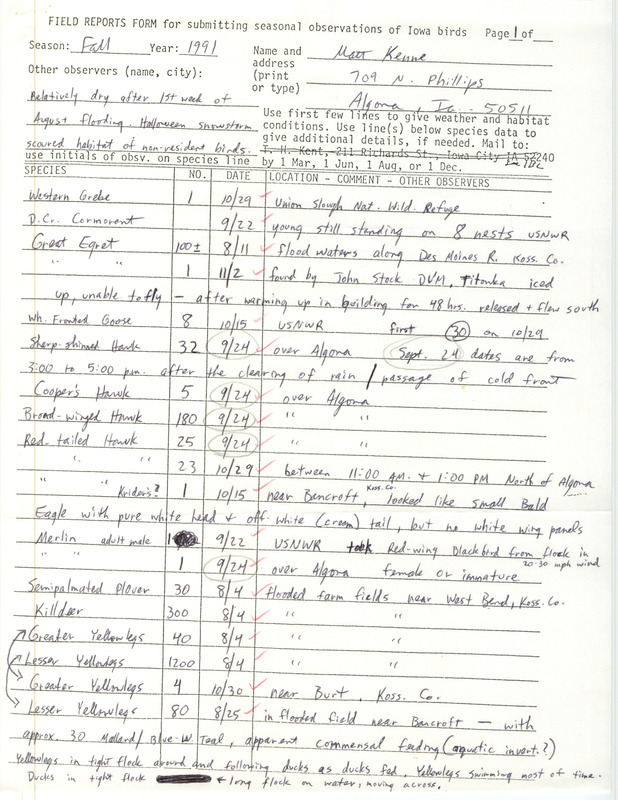 FIELD REPORTS FORM for submitting seasonal observations of Iowa birds Page 1 of
Season: Fall Year: 1991
Name and address (print or type)
Matt Kenne
709 N. Phillips
Algona, Ia. 50511
Other observers (name, city):
Relatively dry after 1st week of
August flooding. Halloween snowstorm
scoured habitat of non-resident birds.
Use first few lines to give weather and habitat
conditions. Use line(s) below species data to
give additional details, if needed. Mail to:
T. H. Kent, 211 Richards St., Iowa City IA 52240
use initials of obsv. on species line by 1 Mar, 1 Jun, 1 Aug, or 1 Dec.
SPECIES NO. DATE LOCATION - COMMENT - OTHER OBSERVERS
Western Grebe 1 10/29 Union Slough Nat. Wild. Refuge
D.Cr. Cormorent 9/22 young still standing on 8 nests USNWR
Great Egret 100± 8/11 flood waters along Des Moines R. Koss. Co.
" " 1 11/2 found by John Stock DVM, Titonka iced
up, unable to fly — after warming up in building for 48 hrs. released + flew south
Wh. Fronted Goose 8 10/15 USNWR first 30 on 10/29
Sharp-shinned Hawk 32 9/24 over Algona Sept. 24 dates are from
3:00 to 5:00 pm. after the clearing of rain / passage of cold front
Cooper's Hawk 5 9/24 over Algona
Broad-winged Hawk 180 9/24 " "
Red-tailed Hawk 25 9/24 " "
" " 23 10/29 between 11:00 AM. + 1:00 PM North of Algona
" " Kriders? 1 10/15 near Bancroft, Koss. Co. looked like small Bald
Eagle with pure white head + off-white (cream) tail, but no white wing panels
Merlin adult male 1 9/22 USNWR took Red-wing Blackbird from flock in 20-30 mph wind
" " 1 9/24 over Algona female or immature
Semipalmated Plover 30 8/4 flooded farm fields near West Bend, Koss. Co.
Killdeer 300 8/4 " "
Greater Yellowlegs 40 8/4 " "
Lesser Yellowlegs 1200 8/4 " "
Greater Yellowlegs 4 10/30 near Burt, Koss. Co.
Lesser Yellowlegs 80 8/25 in flooded field near Bancroft — with
approx. 30 Mallard/Blue-W. Teal, apparent commensal feeding (aquatic invert.?)
Yellowlegs in tight flock around and following ducks as ducks fed, Yellowlegs swimming most of time.
Ducks in tight flock ← long flock on water, moving across.